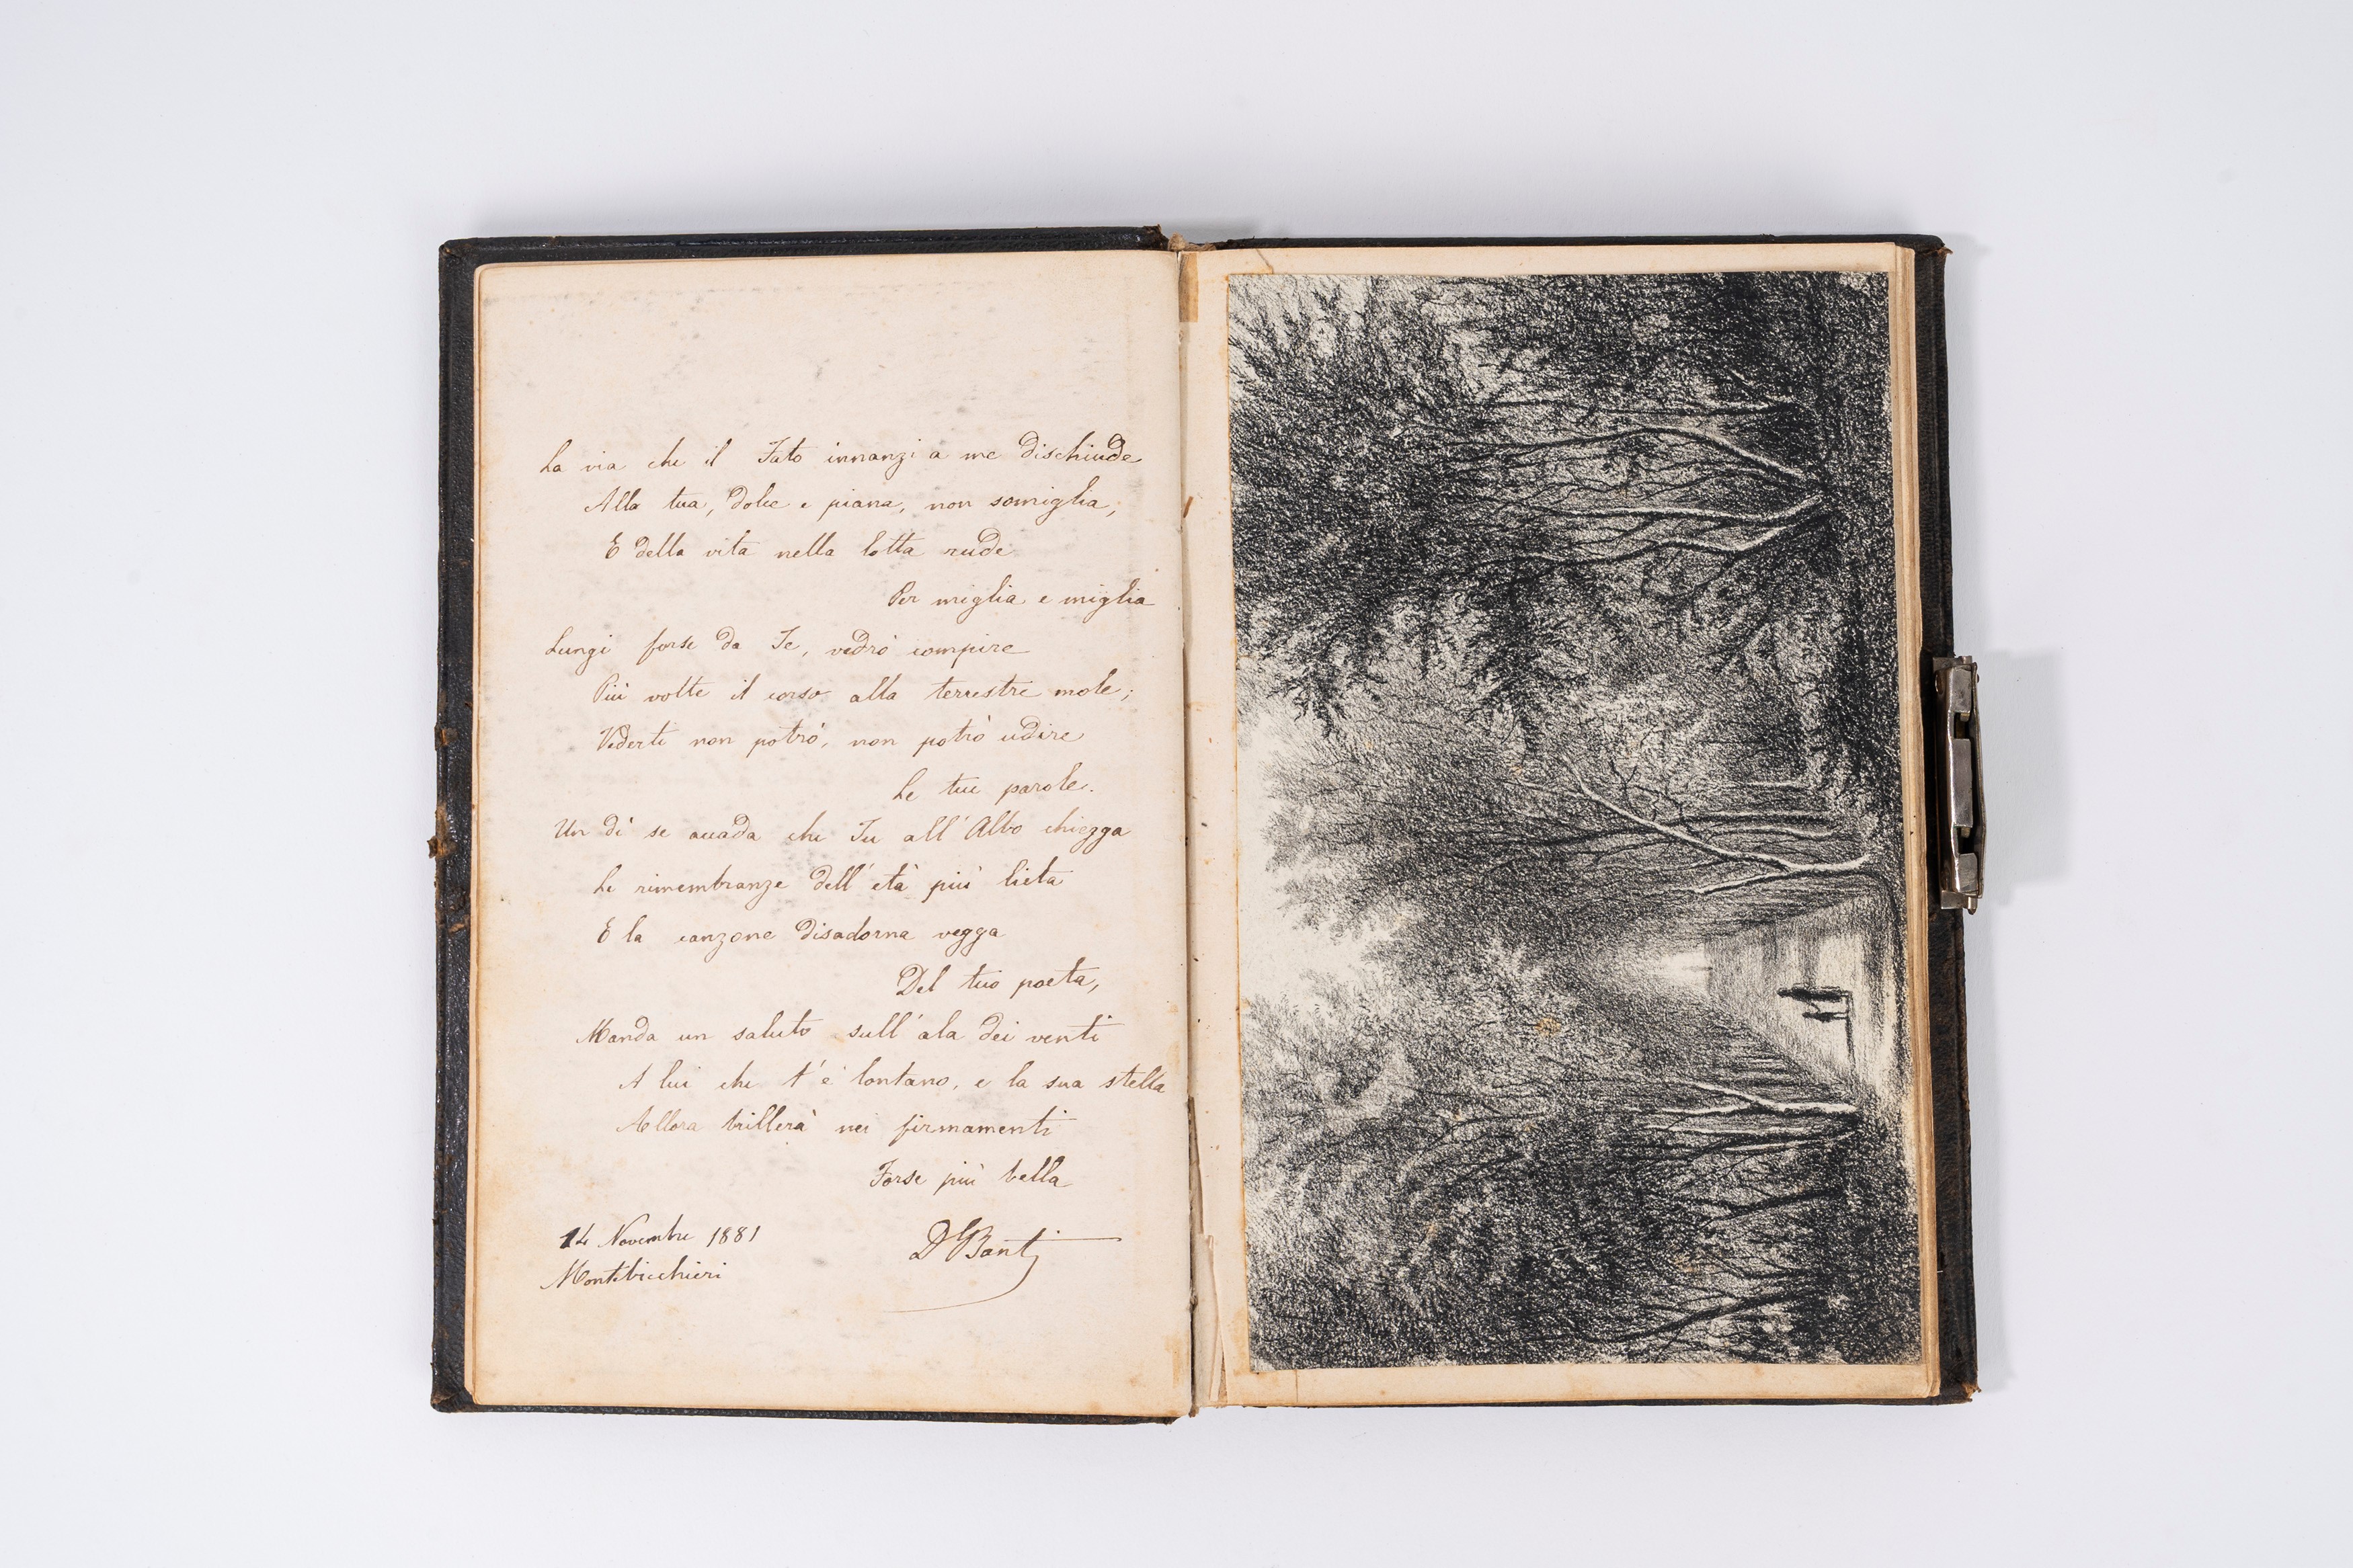 La via che il Fato innanzi a me dischiude
Alla tua, dolce e piana, non somiglia;
E della vita nella lotta rude
Per miglia e miglia
Lungi forse da Te, vedrò compire
Più volte il corso alla terrestre mole;
Vederti non potrò, non potrò udire
Le tue parole.
Un dì se accada che Tu all'Albo chiegga
Le rimembranze dell'età più lieta
E la canzone disadorna vegga
Del tuo poeta,
Manda un saluto sull'ala dei venti
A lui che t'è lontano, e la sua stella
Allora brillerà nei firmamenti
Forse più bella
14 Novembre 1881
Montebicchieri
D Banti